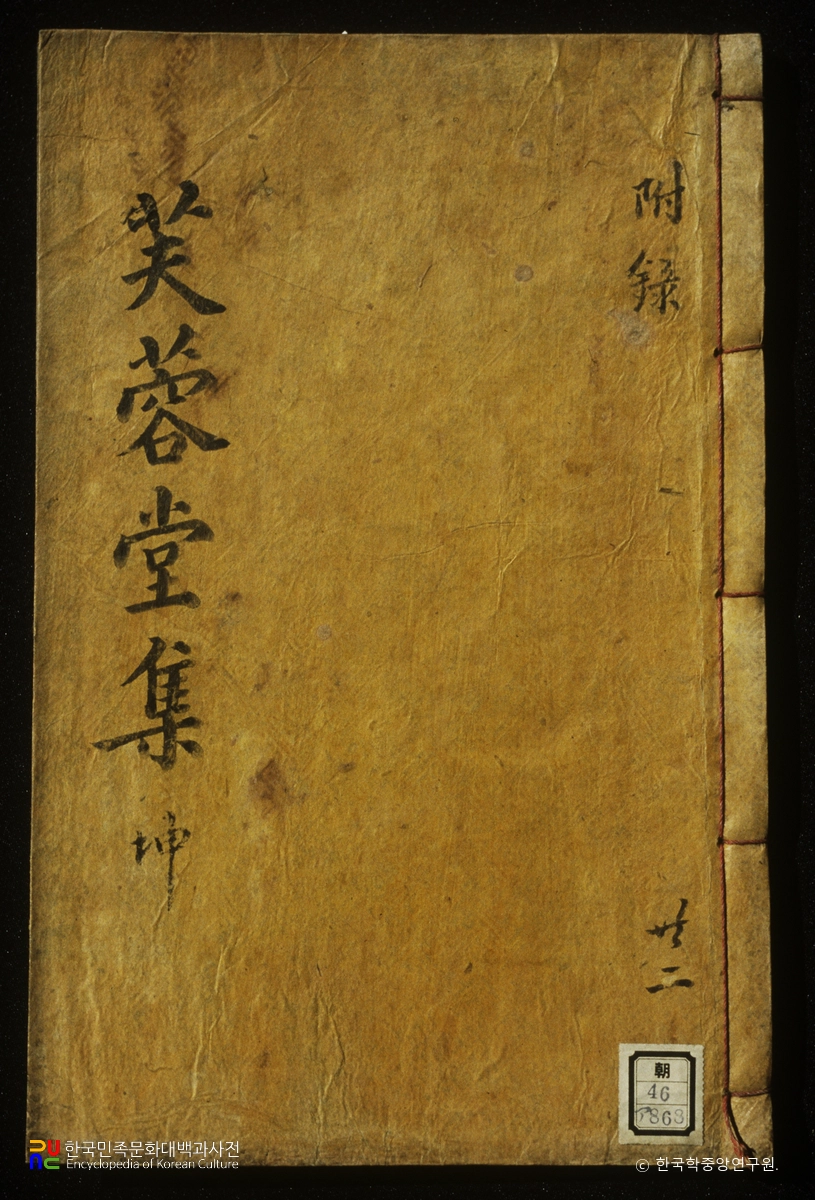 附録
芙蓉堂集 坤
共二
朝
46
868
한국민족문화대백과사전
Encyclopedia of Korean Culture
© 한국학중앙연구원.